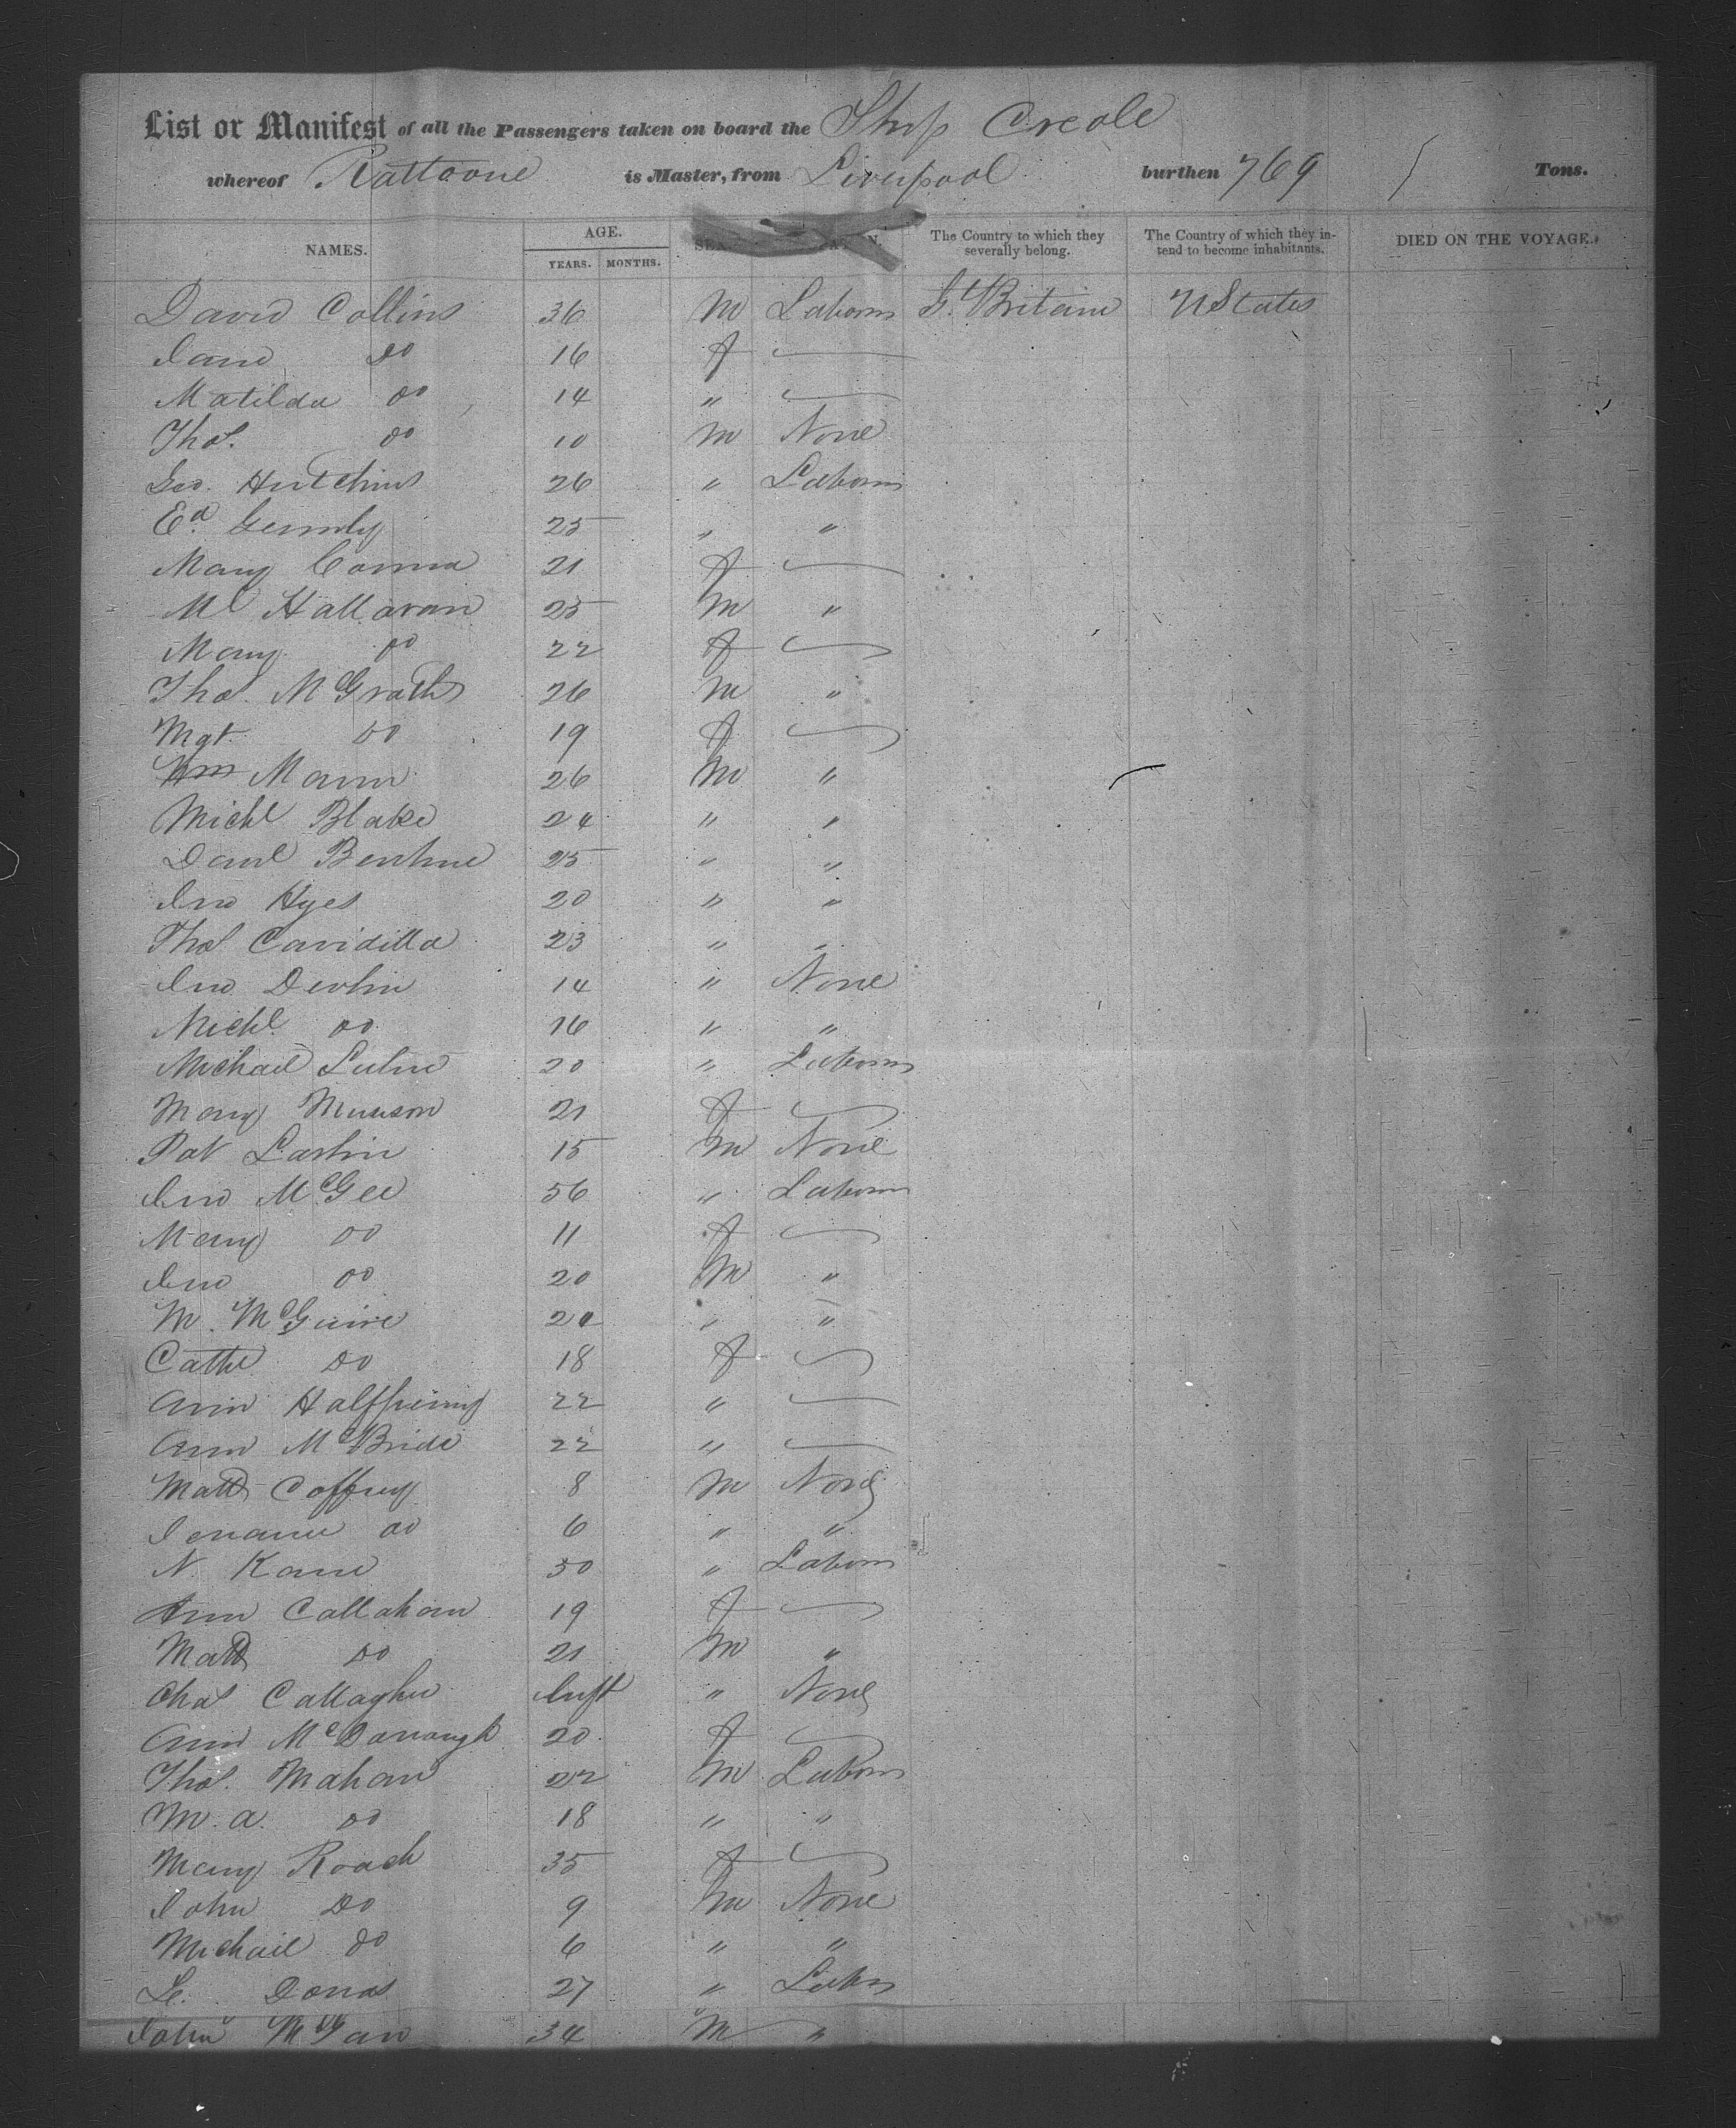 List or Manifest of all the Passengers taken on board the Ship Creole
whereof Rattoone is Master, from Liverpool burthen 769 / Tons.
NAMES. AGE. YEARS. MONTHS. The Country to which they severally belong. The Country of which they intend to become inhabitants. DIED ON THE VOYAGE.
David Collins 36 M Laborer Gt Britain U States
Jane Do 16 f
Matilda Do 14 "
Thos. Do 10 M None
Geo. Hutchins 26 " Laborer
Ed. 25 " "
Mary Conna 21 f
Ml Hallaran 25 M "
Mary Do 22 f
Thos. McGrath 26 M "
Mgt. Do 19 f
Wm Mann 26 M "
Michl Blake 24 " "
Danl 25 " "
Jno Hyes 20 " "
Thos Cavidilla 23 " "
Jno Devlin 14 " None
Michl. Do 16 " "
Michael 20 " Laborer
Mary 21 f
Pat Larkin 15 M None
Jno McGee 56 " Laborer
Mary Do 11 f
Jno Do 20 M "
M. McGuire 20 " "
Cathe Do 18 f
Ann Halfpenny 22 "
Ann McBride 22 "
Matt Coffrey 8 M None
Do 6 " "
N. Kane 30 " Laborer
Ann Callahan 19 f
Matt Do 21 M "
Chas Callaghn Inft " None
Ann McDonough 20 f
Thos. Mahan 22 M Laborer
M. A. Do 18 " "
Mary Roach 35 f
John Do 9 M None
Michael Do 6 " "
27 " Labr
John 34 M "